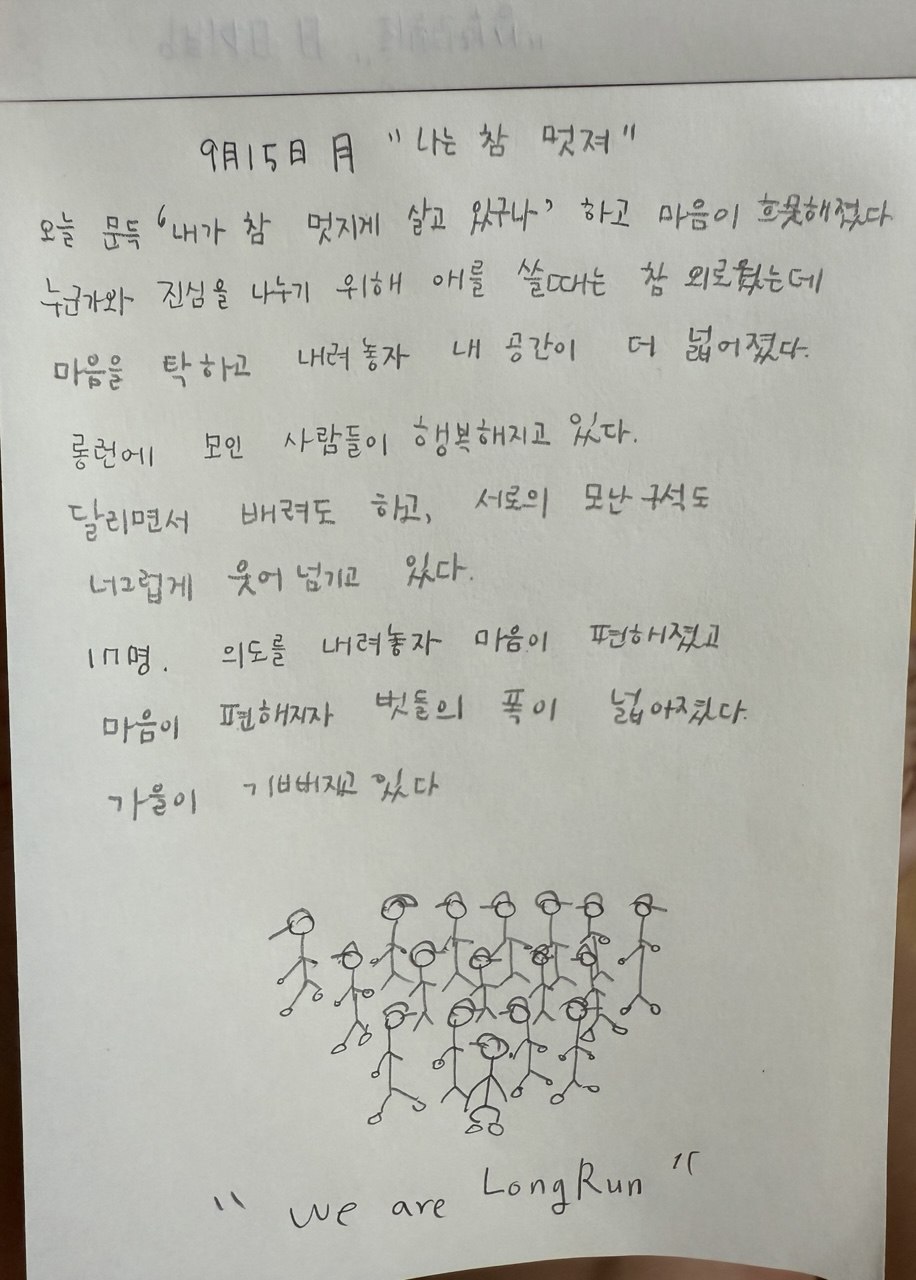 9月15日 月 "나는 참 멋져"
오늘 문득 '내가 참 멋지게 살고 있구나' 하고 마음이 흐뭇해졌다
누군가와 진심을 나누기 위해 애를 쓸때는 참 외로웠는데
마음을 탁하고 내려놓자 내 공간이 더 넓어졌다.
롱런에 모인 사람들이 행복해지고 있다.
달리면서 배려도 하고, 서로의 모난 구석도
너그럽게 웃어 넘기고 있다.
17명. 의도를 내려놓자 마음이 편해졌고
마음이 편해지자 벗들의 폭이 넓아졌다.
가을이 기뻐지고 있다
"we are LongRun"